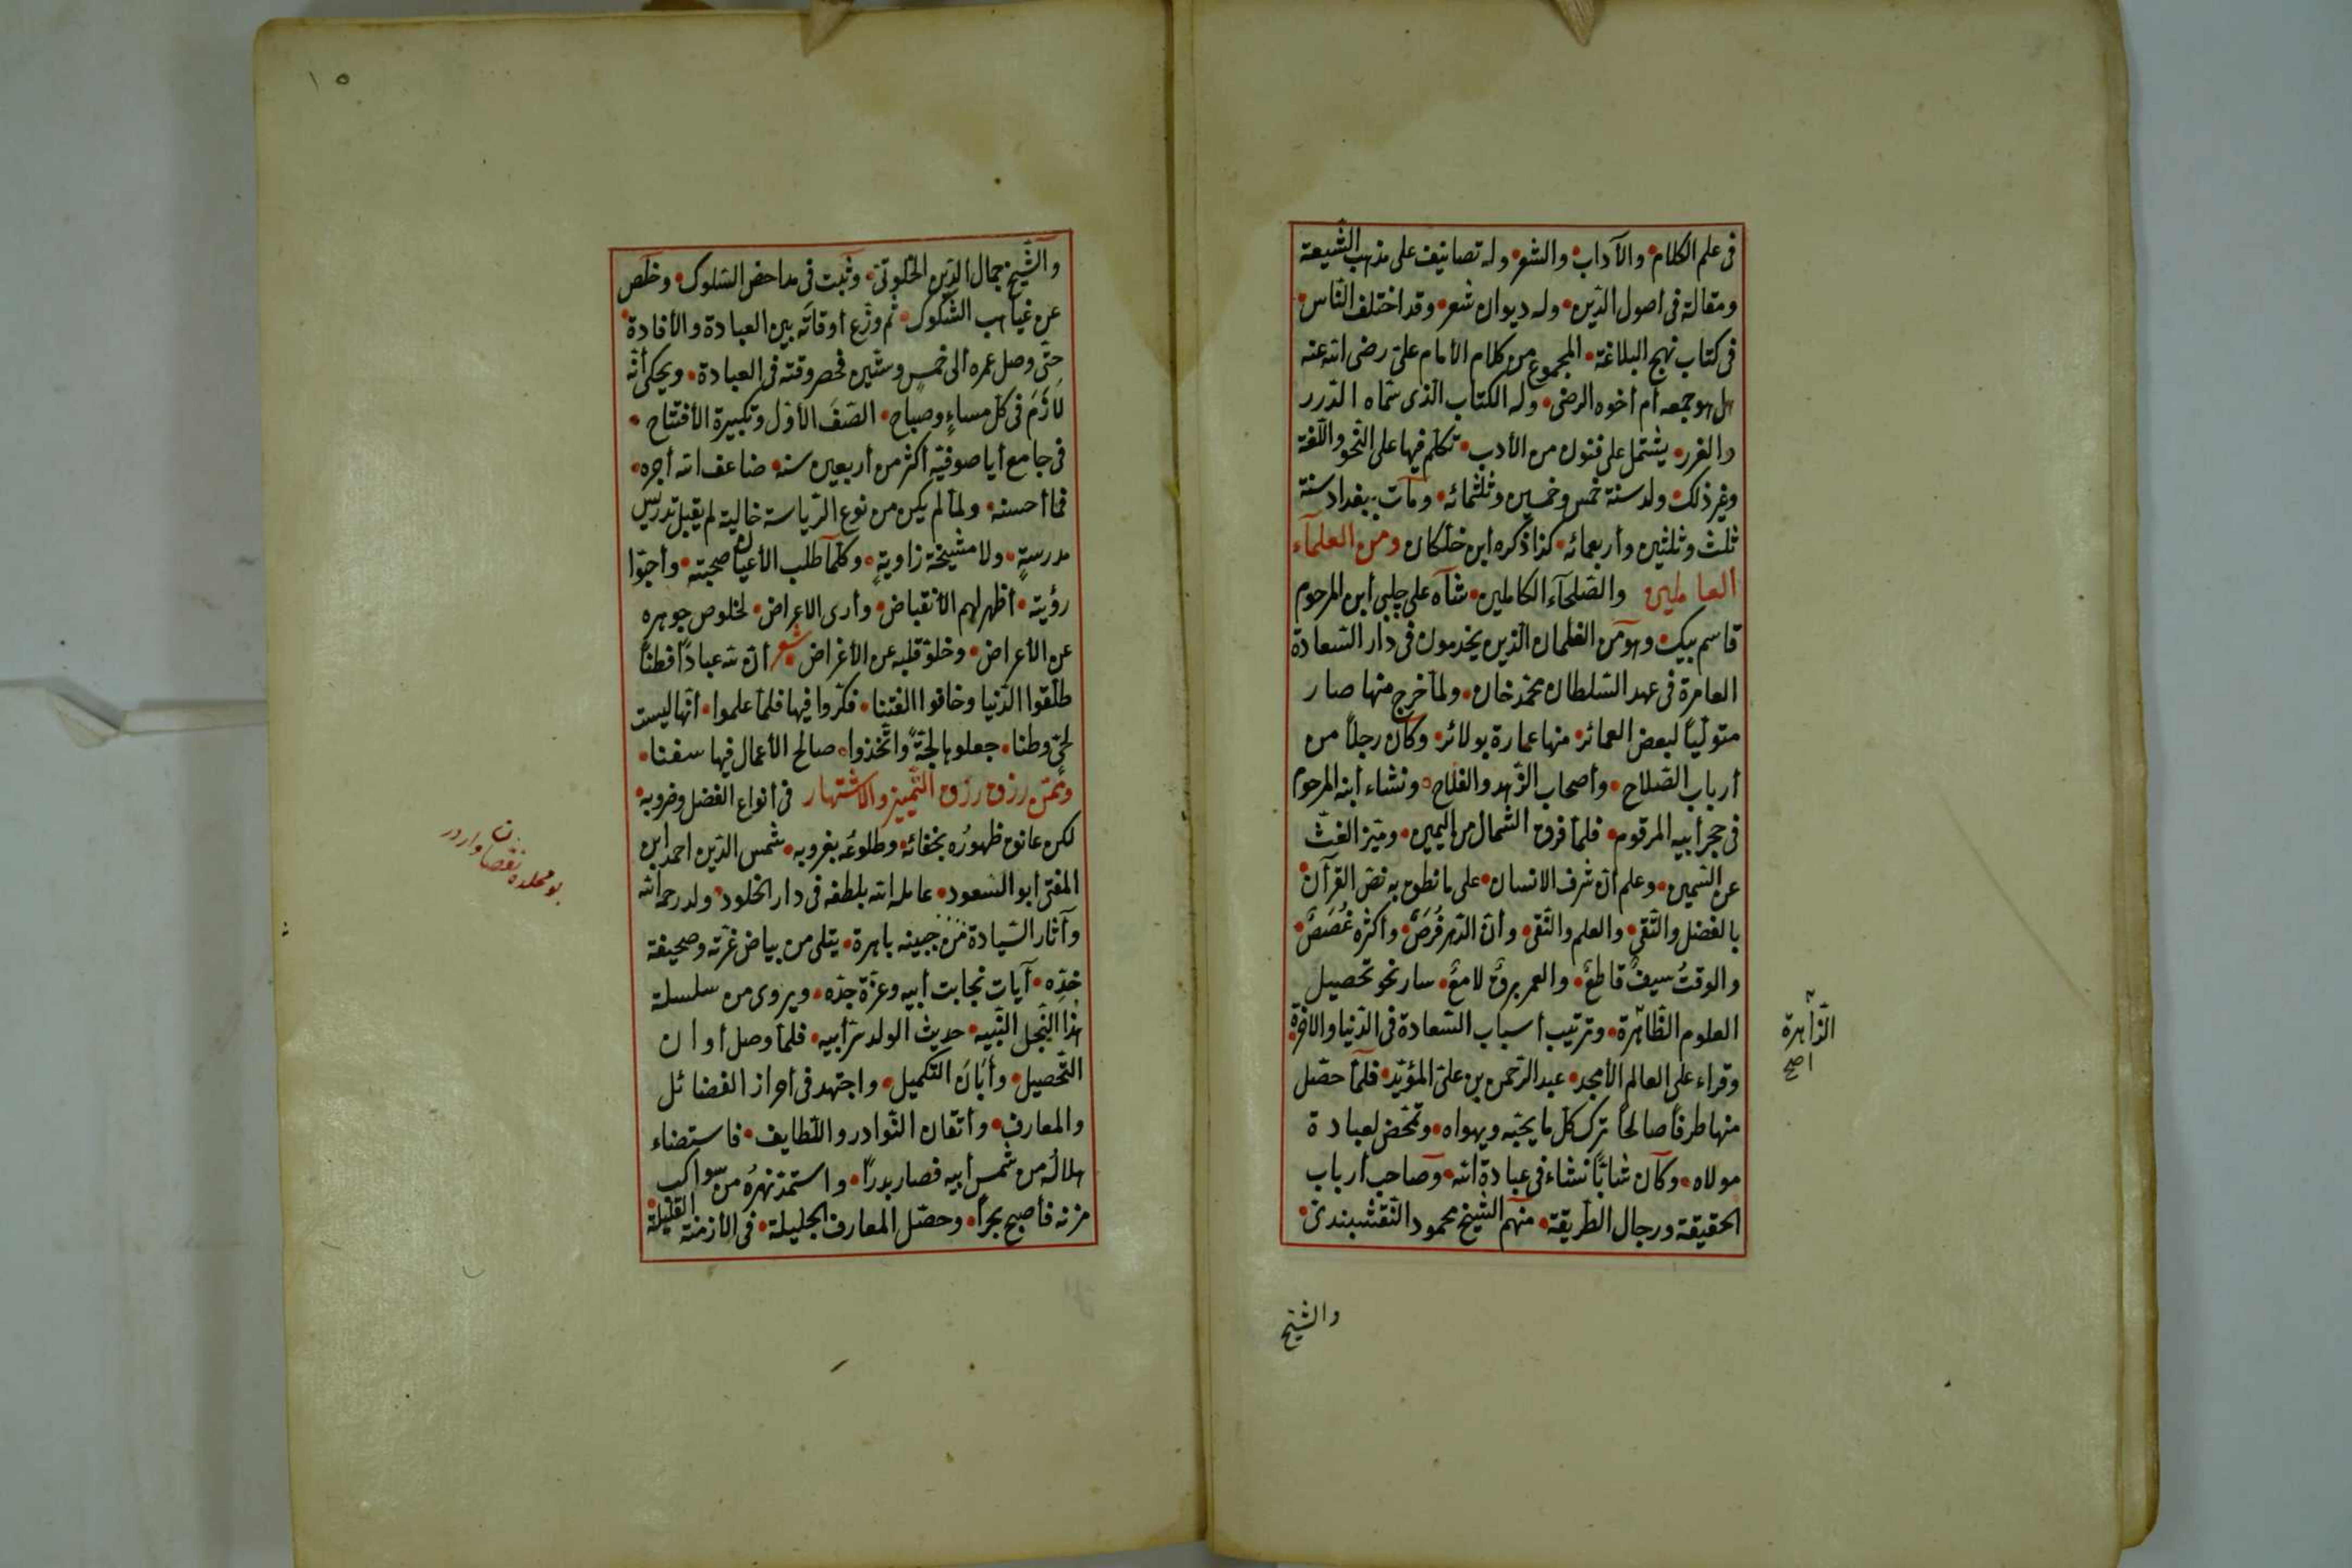 فى علم الكلام• والآداب• والشعر• وله تصانيف على مذهب الشيعة
ومقالة فى أصول الدّين• وله ديوان شعر• وقد اختلف النّاس•
فى كتاب نهج البلاغة• المجموع من كلام الأمام علىّ رضى الله عنه
هل هو جمعه أم أخوه الرضى• وله الكتاب الّذى سمّاه الدّرر
والغرر• يشتمل على فنون من الأدب• تكلّم فيها على النّحو واللّغة
وغير ذلك• ولد سنة خمس وخمسين وثلثمائه• ومات ببغداد سنة
ثلث وثلثين وأربعمائه• كذا ذكره أبن خلّكان ومن العلمآء
العاملين والصّلحآء الكاملين• شاه على چلبى أبن المرحوم
قاسم بيك• وهو من الغلمان الّذين يخدمون فى دار السّعادة
العامرة فى عهد السّلطان محمّد خان• ولمّا خرج منها صار
متولّياً لبعض العمائر• منها عمارة بولائر• وكان رجلاً من
أرباب الصّلاح• وأصحاب الزّهد والفلاح• ونشاء أبنه المرحوم
فى حجر أبيه المرقوم• فلمّا فرق الشّمال من اليمين• وميّز الغثّ
عن السّمين• وعلم أنّ شرف الانسان• على ما نطق به نصّ القرآن•
بالفضل والتّقى• والعلم والنّقى• وأنّ الدّهر فُرَصٌ• وأكثره غُصَصٌ•
والوقتُ سيفٌ قاطعٌ• والعمر برقٌ لامعٌ• سار نحو تحصيل
العلوم الظّاهرة• وترتيب أسباب السّعادة فى الدّنيا والاخرة•
وقراء على العالم الأمجد• عبد الرّحمن بن علىّ المؤيّد• فلمّا حصّل
منها طرفاً صالحاً ترك كلّ ما يحبّه ويهواه• وتمحّض لعبادة
مولاه• وكان شابّاً نشاء فى عبادة الله• وصاحب أرباب
الحقيقة ورجال الطّريقة• منهم الشّيخ محمود النّقشبندىّ•
الزّاهرة
صح
والشّيخ
١٥
والشّيخ جمال الدّين الخلوتىّ• وثبت فى مداحض السّلوك• وخلص
عن غياهب الشّكوك• ثم وزّع أوقاتَه بين العبادة والأفادة•
حتّى وصل عمره الى خمس وستّين فحصر وقته فى العبادة• ويحكى أنّه
لَازَمَ فى كلّ مساءٍ وصباح• الصّفَ الأوّل وتكبيرة الأفتتاح•
فى جامع أيا صوفيّه أكثر من أربعين سنه• ضاعف الله أجره•
فما أحسنه• ولمّا لم يكن من نوع الرّياسة خالية لم يقبل تدريس
مدرسةٍ• ولا مشيخة زاويةٍ• وكلّما طلب الأعيان صحبته• وأحبّوا
رؤيته• أظهر لهم الأنقباض• وأرى الاعراض• لخلوص جوهره
عن الأعراض• وخلوّ قلبه عن الأغراض• شعر أنّ لله عباداً فطناً
طلّقوا الدّنيا وخافوا الفتنا• فكّروا فيها فلمّا علموا• أنّها ليست
لحىّ وطنا• جعلوها لجّةً واتّخذوا• صالح الأعمال فيها سفنا•
وممّن رزق رزق التّمييز والاشتهار فى أنواع الفضل وضروبه•
لكن عانق ظهورُه بخفائه• وطلوعُه بغروبه• شمس الدّين احمد ابن
المفتى ابو السّعود• عامله الله بلطفه فى دار الخلود• ولد رحمه الله
وآثار السّيادة من جبينه باهرة• يتلى من بياض غرّته وصحيفة
خدّه• آيات نجابت أبيه وعزّة جدّه• ويروى من سلسلة
هذا النّجل النّبيه• حديث الولد سرّ أبيه• فلمّا وصل أوان
التّحصيل• وأبّانَ التّكميل• واجتهد فى أحراز الفضائل
والمعارف• وأتقان النّوادر واللّطايف• فاستضاء
هلالُه من شمس أبيه فصار بدراً• واستمدّ نهرُه من سواكب
مزنه فأصبح بحراً• وحصّل المعارف الجليلة• فى الأزمنة القليلة•
بو محلده نقصان واردر